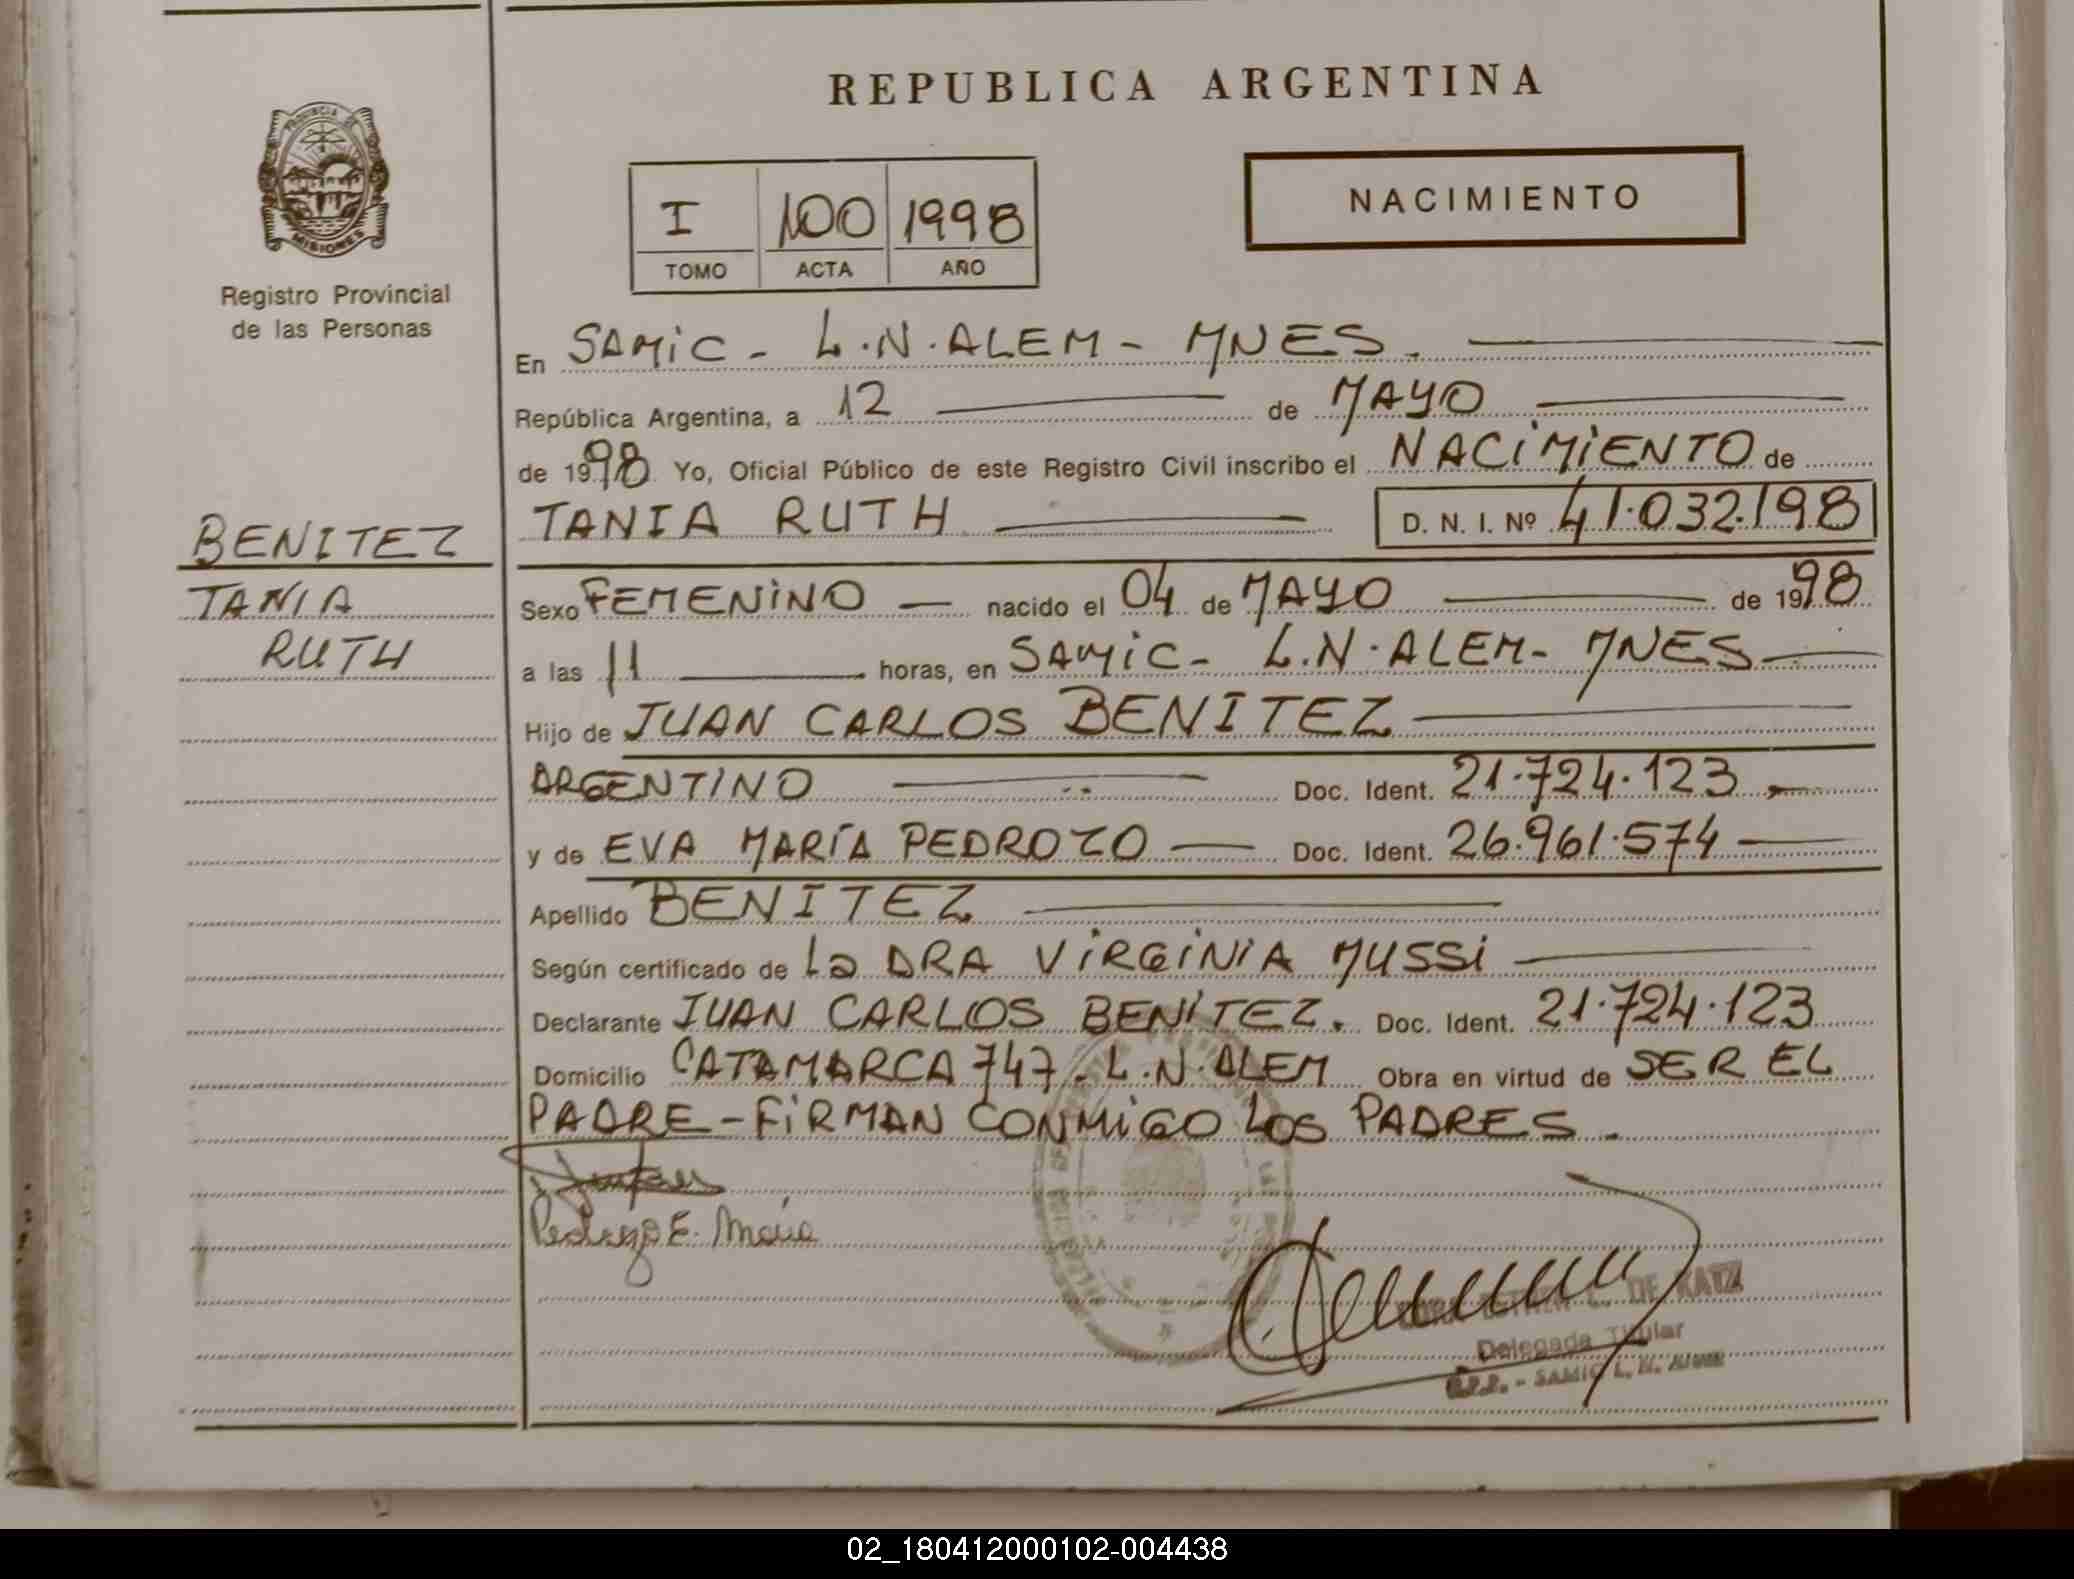 REPUBLICA ARGENTINA
PROVINCIA DE
MISIONES
Registro Provincial
de las Personas
I 100 1998
TOMO ACTA AÑO
NACIMIENTO
En SAMIC - L.N. ALEM - MNES.
República Argentina, a 12 de MAYO
de 1998 Yo, Oficial Público de este Registro Civil inscribo el NACIMIENTO de
BENITEZ
TANIA
RUTH
TANIA RUTH D. N. I. Nº 41.032.198
Sexo FEMENINO — nacido el 04 de MAYO de 1998
a las 11 horas, en SAMIC - L.N. ALEM - MNES
Hijo de JUAN CARLOS BENITEZ
ARGENTINO Doc. Ident. 21.724.123
y de EVA MARÍA PEDROZO Doc. Ident. 26.961.574
Apellido BENITEZ
Según certificado de La DRA VIRGINIA MUSSI
Declarante JUAN CARLOS BENITEZ. Doc. Ident. 21.724.123
Domicilio CATAMARCA 747 - L.N. ALEM Obra en virtud de SER EL
PADRE - FIRMAN CONMIGO LOS PADRES.
Pedrozo E. María
DE KATZ
Delegada Titular
R.P.P. - SAMIC L. N. ALEM
02_180412000102-004438